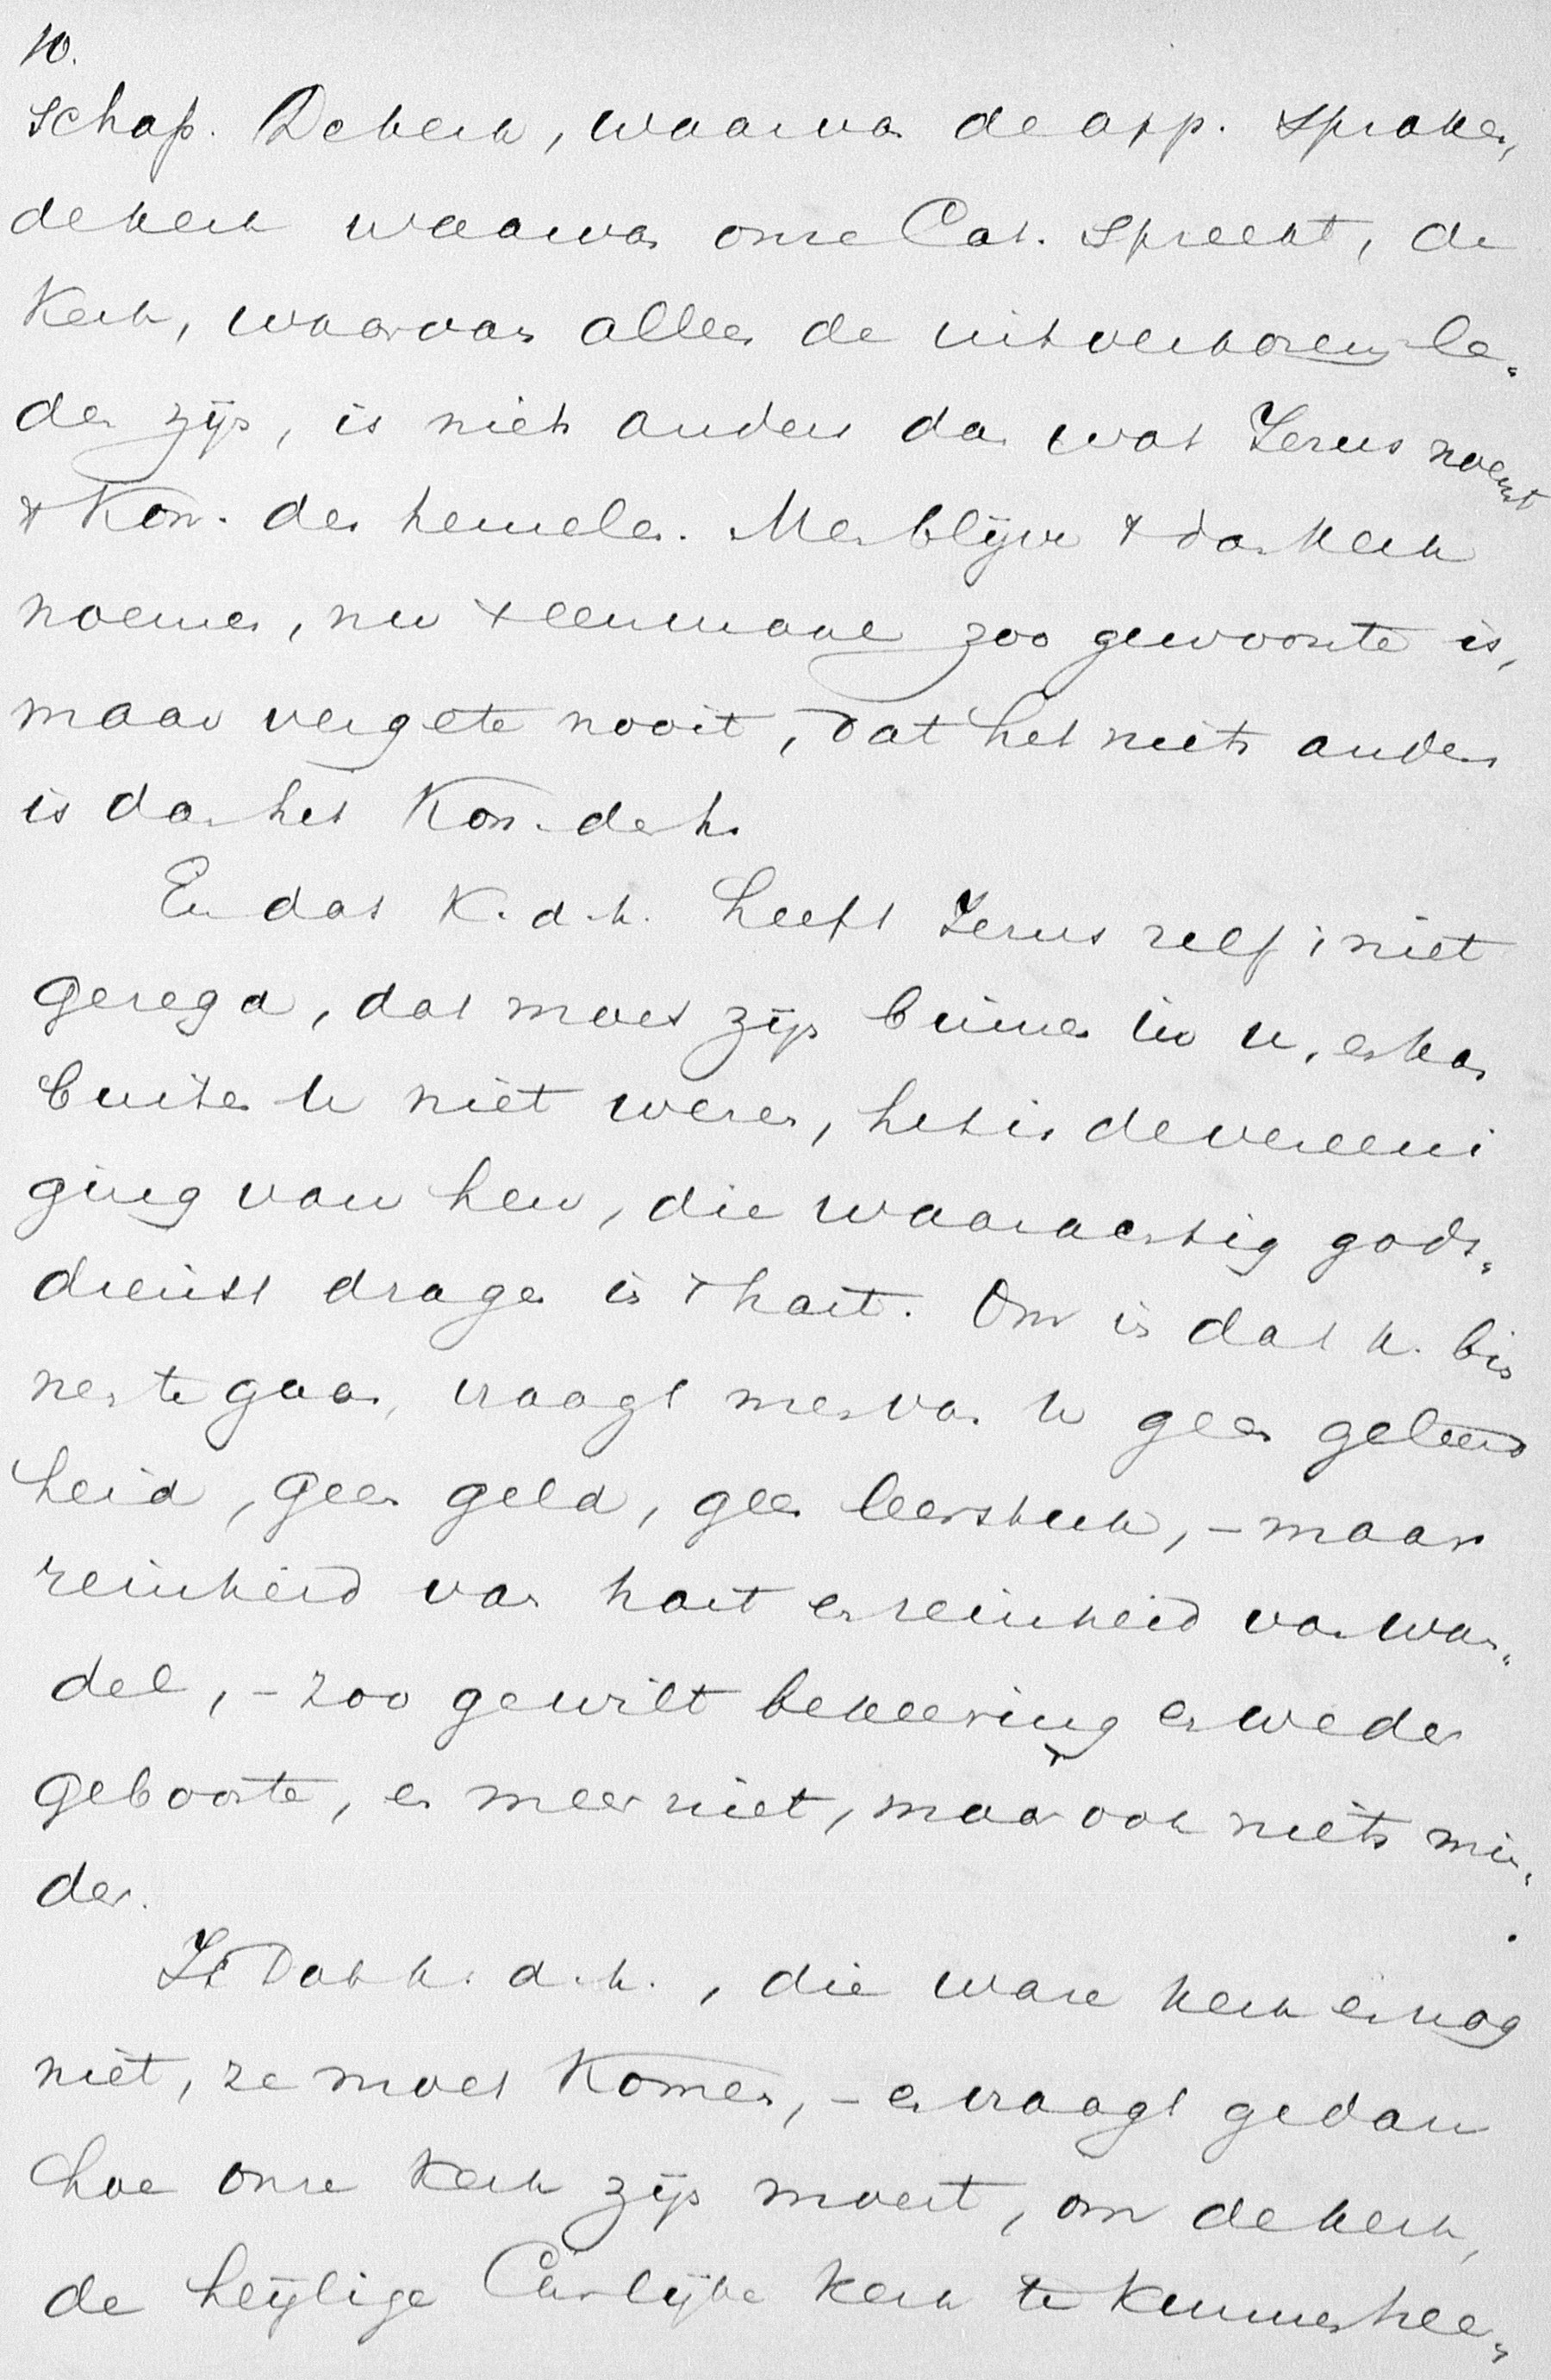 10.
schap. De kerk, waarvan de app. spraken,
de kerk waarvan onze Cat. spreekt, de
Kerk, waarvan alleen de uitverkoren le-
den zijn, is niets anders dan wat Jezus noemt
't Kon. der hemelen. Men blijve 't dan kerk
noemen, nu 't eenmaal zoo gewoonte is,
maar vergete nooit, dat het niets anders
is dan het Kon. der h.
En dat K. d. h. heeft Jezus zelf; niet
gezegd, dat moet zijn binnen in u, en kan
buiten u niet wezen, het is de vereeni
ging van hen, die waarachtig gods-
dienst dragen in 't hart. Om in dat k. bin
nen te gaan, vraagt men van u geen geleerd
heid, geen geld, geen leerstuk, - maar
reinheid van hart en reinheid van wan-
del, - zoo ge wilt bekeering en weder
geboorte, en meer niet, maar ook niets min-
der.
Is dat k. d. h., die ware kerk er nog
niet, ze moet komen, - en vraagt ge dan
hoe onze kerk zijn moet, om de kerk,
de heylige Christlijke kerk te kunnen hee-